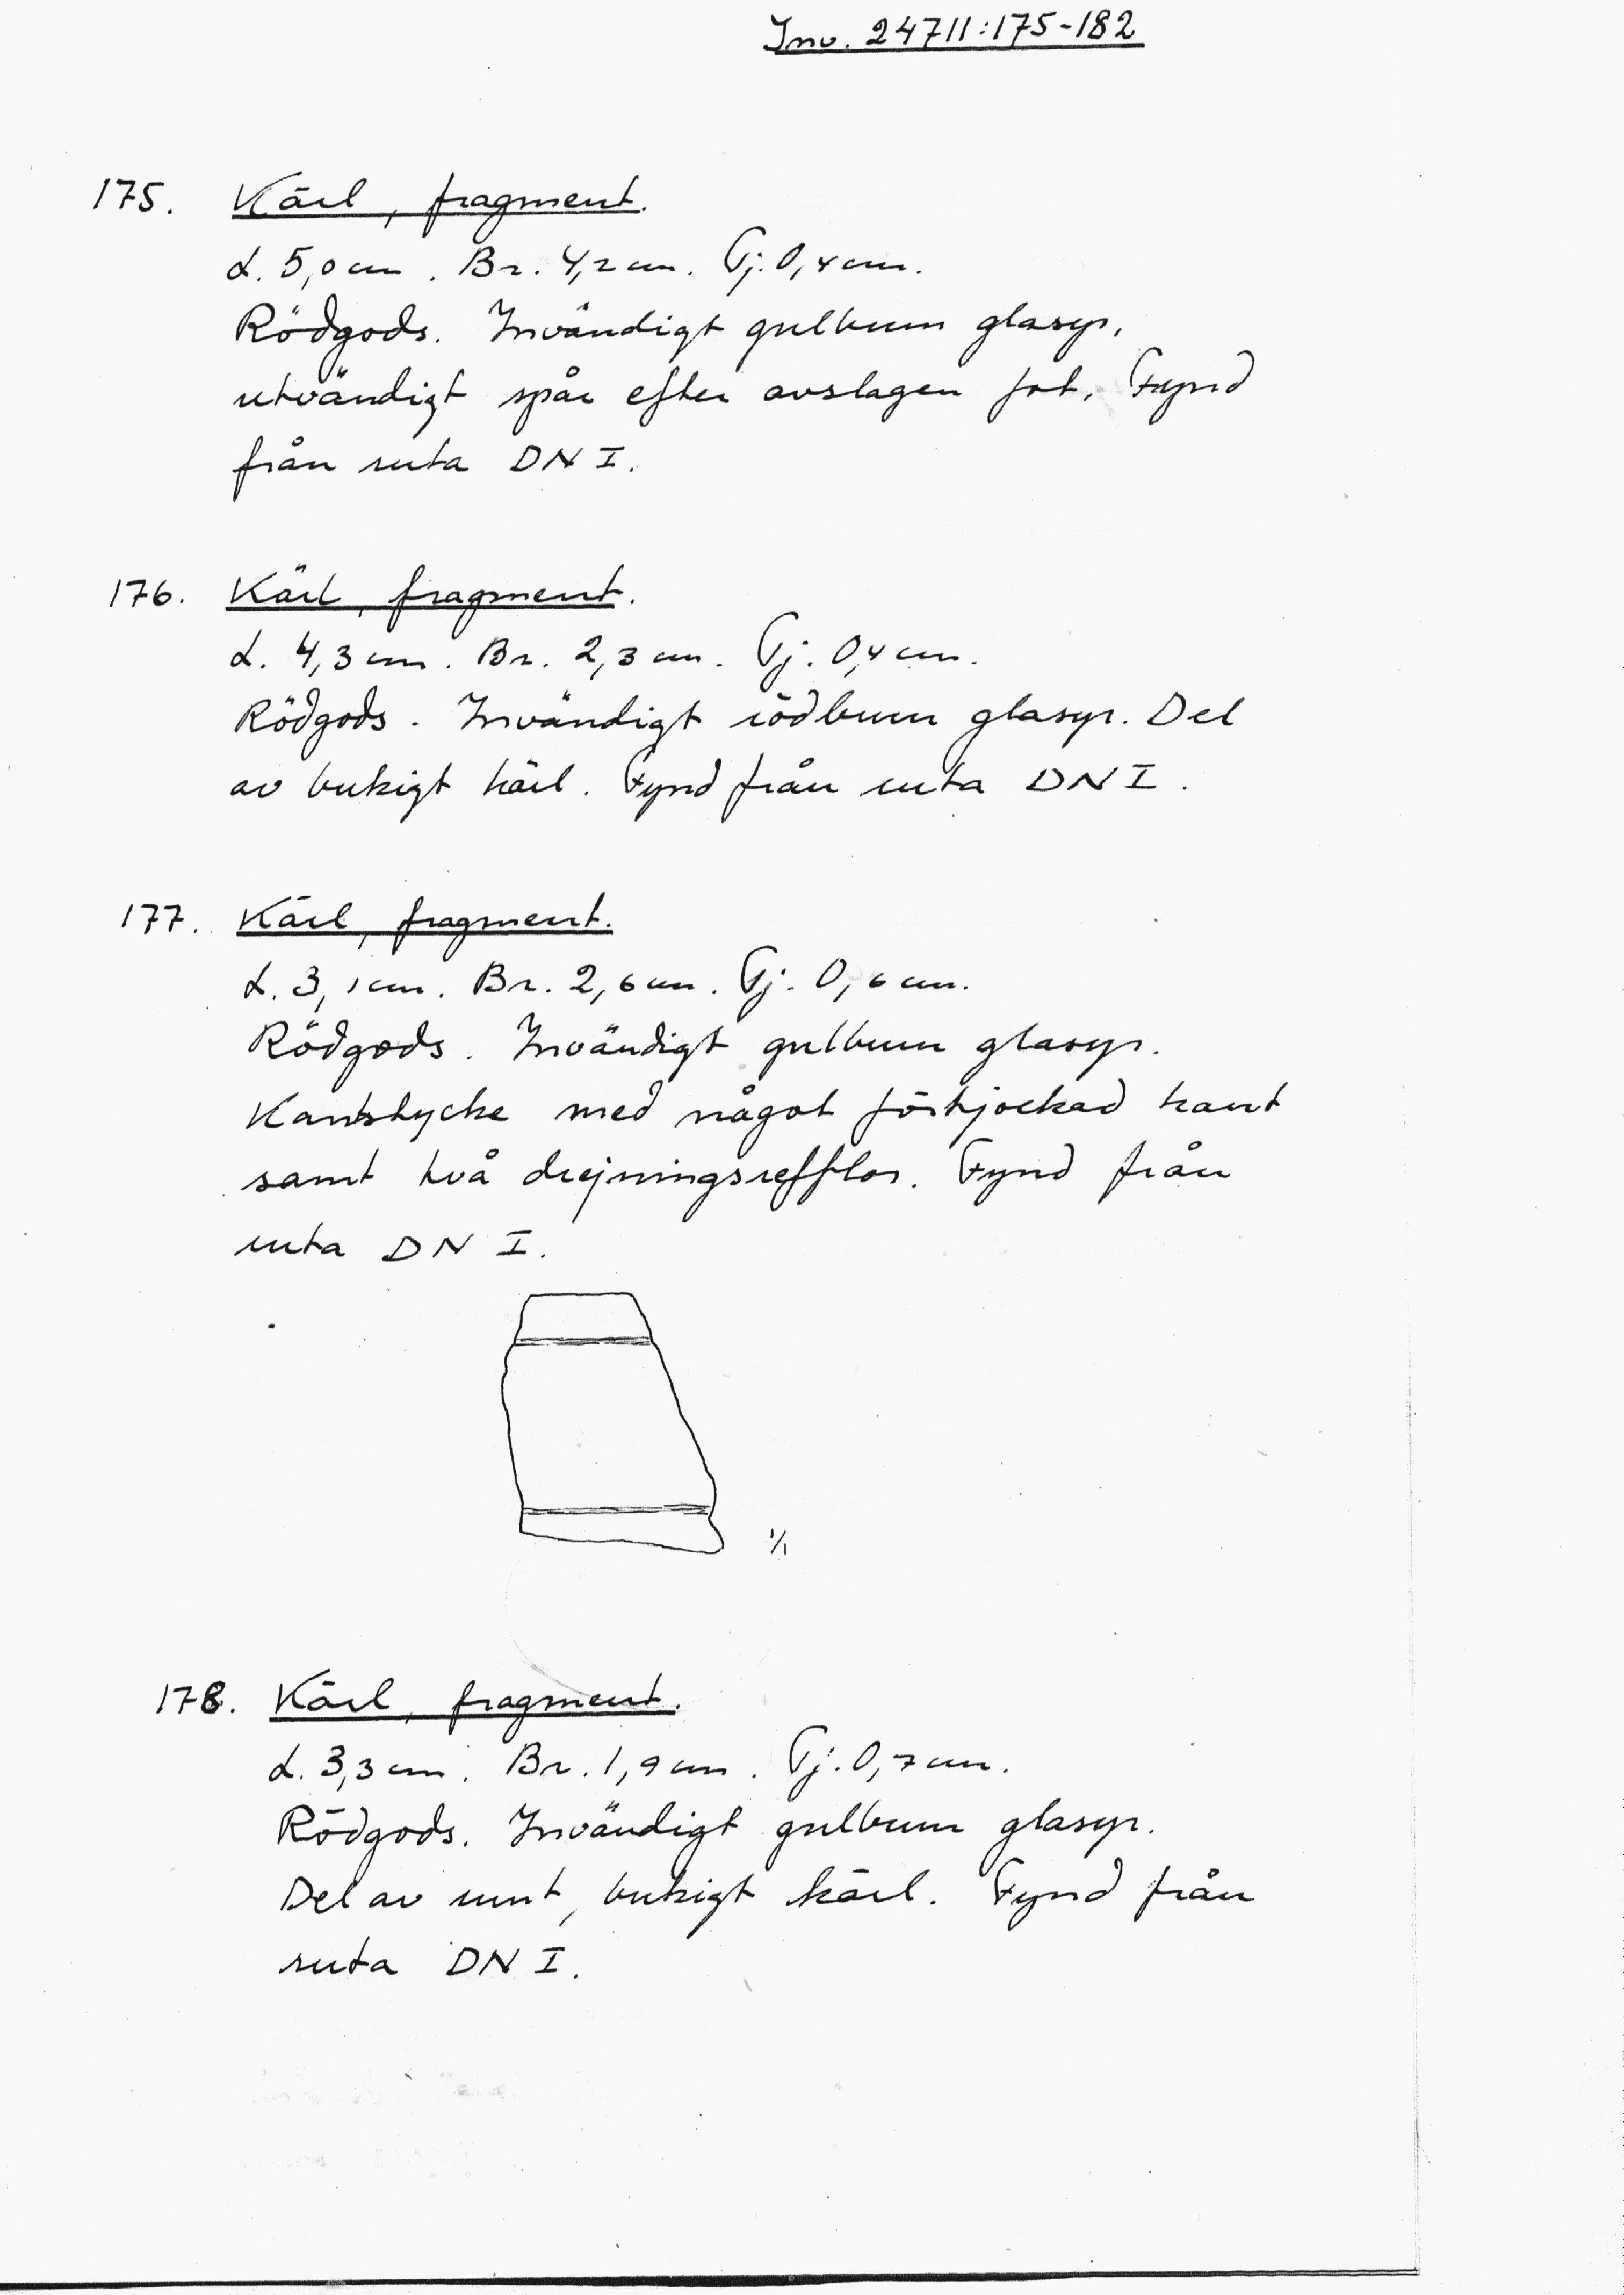 Inv. 24711:175-182
175. Kärl, fragment.
L. 5,0 cm. Br. 4,2 cm. Tj. 0,4 cm.
Rödgods. Invändigt gulbrun glasyr,
utvändigt spår efter avslagen fot. Fynd
från ruta DN I.
176. Kärl, fragment.
L. 4,3 cm. Br. 2,3 cm. Tj. 0,4 cm.
Rödgods. Invändigt rödbrun glasyr. Del
av bukigt kärl. Fynd från ruta DN I.
177. Kärl, fragment.
L. 3,1 cm. Br. 2,6 cm. Tj. 0,6 cm.
Rödgods. Invändigt gulbrun glasyr.
Kantstycke med något förtjockad kant
samt två drejningsrefflor. Fynd från
ruta DN I.
1/1
178. Kärl, fragment.
L. 3,3 cm. Br. 1,9 cm. Tj. 0,7 cm.
Rödgods. Invändigt gulbrun glasyr.
Del av runt, bukigt kärl. Fynd från
ruta DN I.